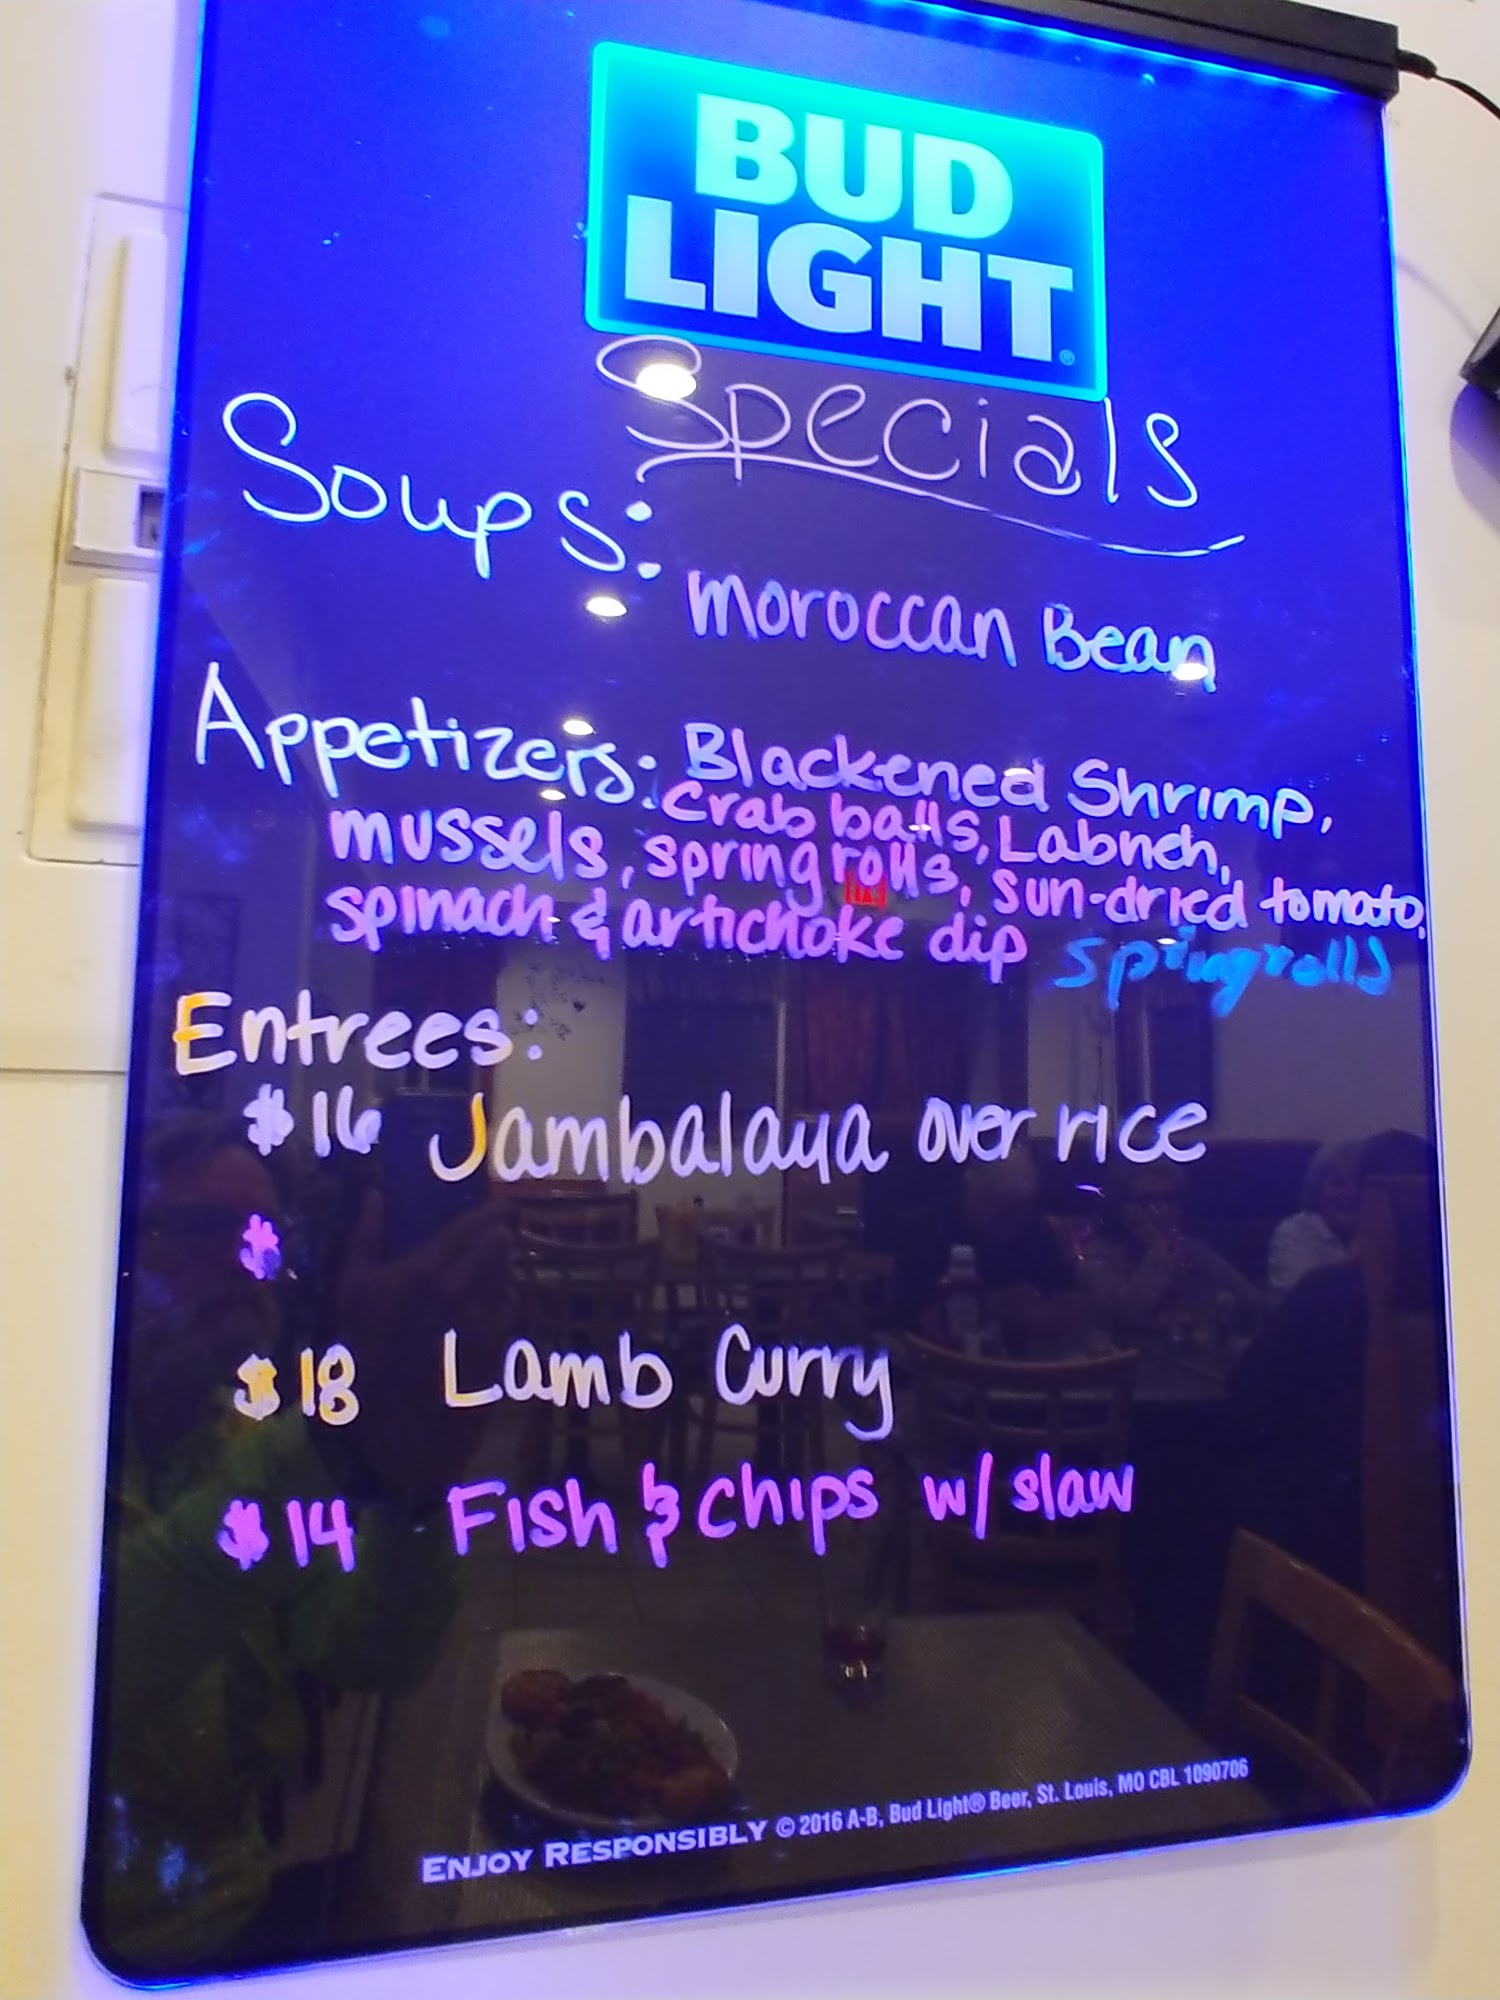 BUD
LIGHT®
Specials
Soups:
Moroccan Bean
Appetizers: Blackened Shrimp,
crab balls, Labneh,
mussels, spring rolls, sun-dried tomato,
spinach & artichoke dip springrolls
Entrees:
$16 Jambalaya over rice
$
$18 Lamb Curry
$14 Fish & chips w/ slaw
ENJOY RESPONSIBLY © 2016 A-B, Bud Light® Beer, St. Louis, MO CBL 1090706